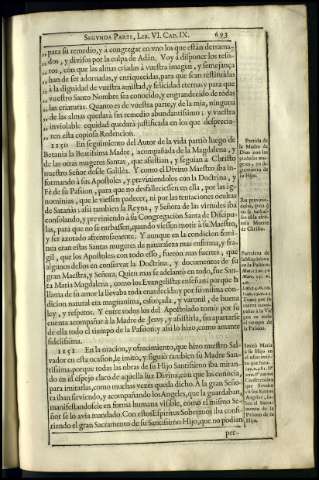 SEGUNDA PARTE, LIB. VI. CAP. IX. 693
„ para su remedio, y à congregar en vno los que están derrama-
„ dos, y divisos por la culpa de Adán. Voy à disponer los teso-
„ ros, con que las almas criadas à vuestra imagen, y semejança
„ han de ser adornadas, y enriquecidas, para que sean restituìdas
„ à la dignidad de vuestra amistad, y felicidad eterna; y para que
„ vuestro Santo Nombre sea conocido, y engrandecido de todas
„ las criaturas. Quanto es de vuestra parte, y de la mia, ninguna
„ de las almas quedarà sin remedio abundantissimo; y vuestra
„ inviolable equidad quedarà justificada en los que desprecia-
„ ren esta copiosa Redencion.
1150 En seguimiento del Autor de la vida partiò luego de
Betania la Beatissima Madre, acompañada de la Magdalena, y
de las otras mugeres Santas, que assistian, y seguian à Christo
nuestro Señor desde Galilea. Y como el Divino Maestro iba in-
formando à sus Apostoles, y previniendolos con la Doctrina, y
Fè de su Passion, para que no desfalleciessen en ella, por las ig-
nominias, que le viessen padecer, ni por las tentaciones ocultas
de Satanàs: assi tambien la Reyna, y Señora de las virtudes iba
consolando, y previniendo à su Congregacion Santa de Discipu-
las, para que no se turbassen, quando viessen morir à su Maestro,
y ser azotado afrentosamente. Y aunque en la condicion femi-
nea eran estas Santas mugeres de naturaleza mas enferma, y fra-
gil, que los Apostoles; con todo esso, fueron mas fuertes, que
algunos dellos en conservar la Doctrina, y documentos de su
gran Maestra, y Señora. Quien mas se adelantò en todo, fue San-
ta Maria Magdalena, como los Evangelistas enseñan: porque la
llama de su amor la llevaba toda enardecida; y por su misma con-
dicion natural era magnanima, esforçada, y varonil, de buena
ley, y respetos. Y entre todos los del Apostolado tomò por su
cuenta acompañar à la Madre de Jesvs, y assistirla, sin apartarse
de ella todo el tiempo de la Passion; y assi lo hizo, como amante
fidelissima.
1151 En la oracion, y ofrecimiento, que hizo nuestro Sal-
vador en esta ocasion, le imitò, y siguiò tambien su Madre San-
tissima; porque todas las obras de su Hijo Santissimo iba miran-
do en el espejo claro de aquella luz Divina, con que las conocia,
para imitarlas, como muchas vezes queda dicho. A la gran Seño-
ra iban sirviendo, y acompañando los Angeles, que la guardaban,
manifestandosele en forma humana visible, como el mismo Se-
ñor se lo avia mandado. Con estos Espiritus Soberanos iba confi-
riendo el gran Sacramento de su Santissimo Hijo, que no podian
per-